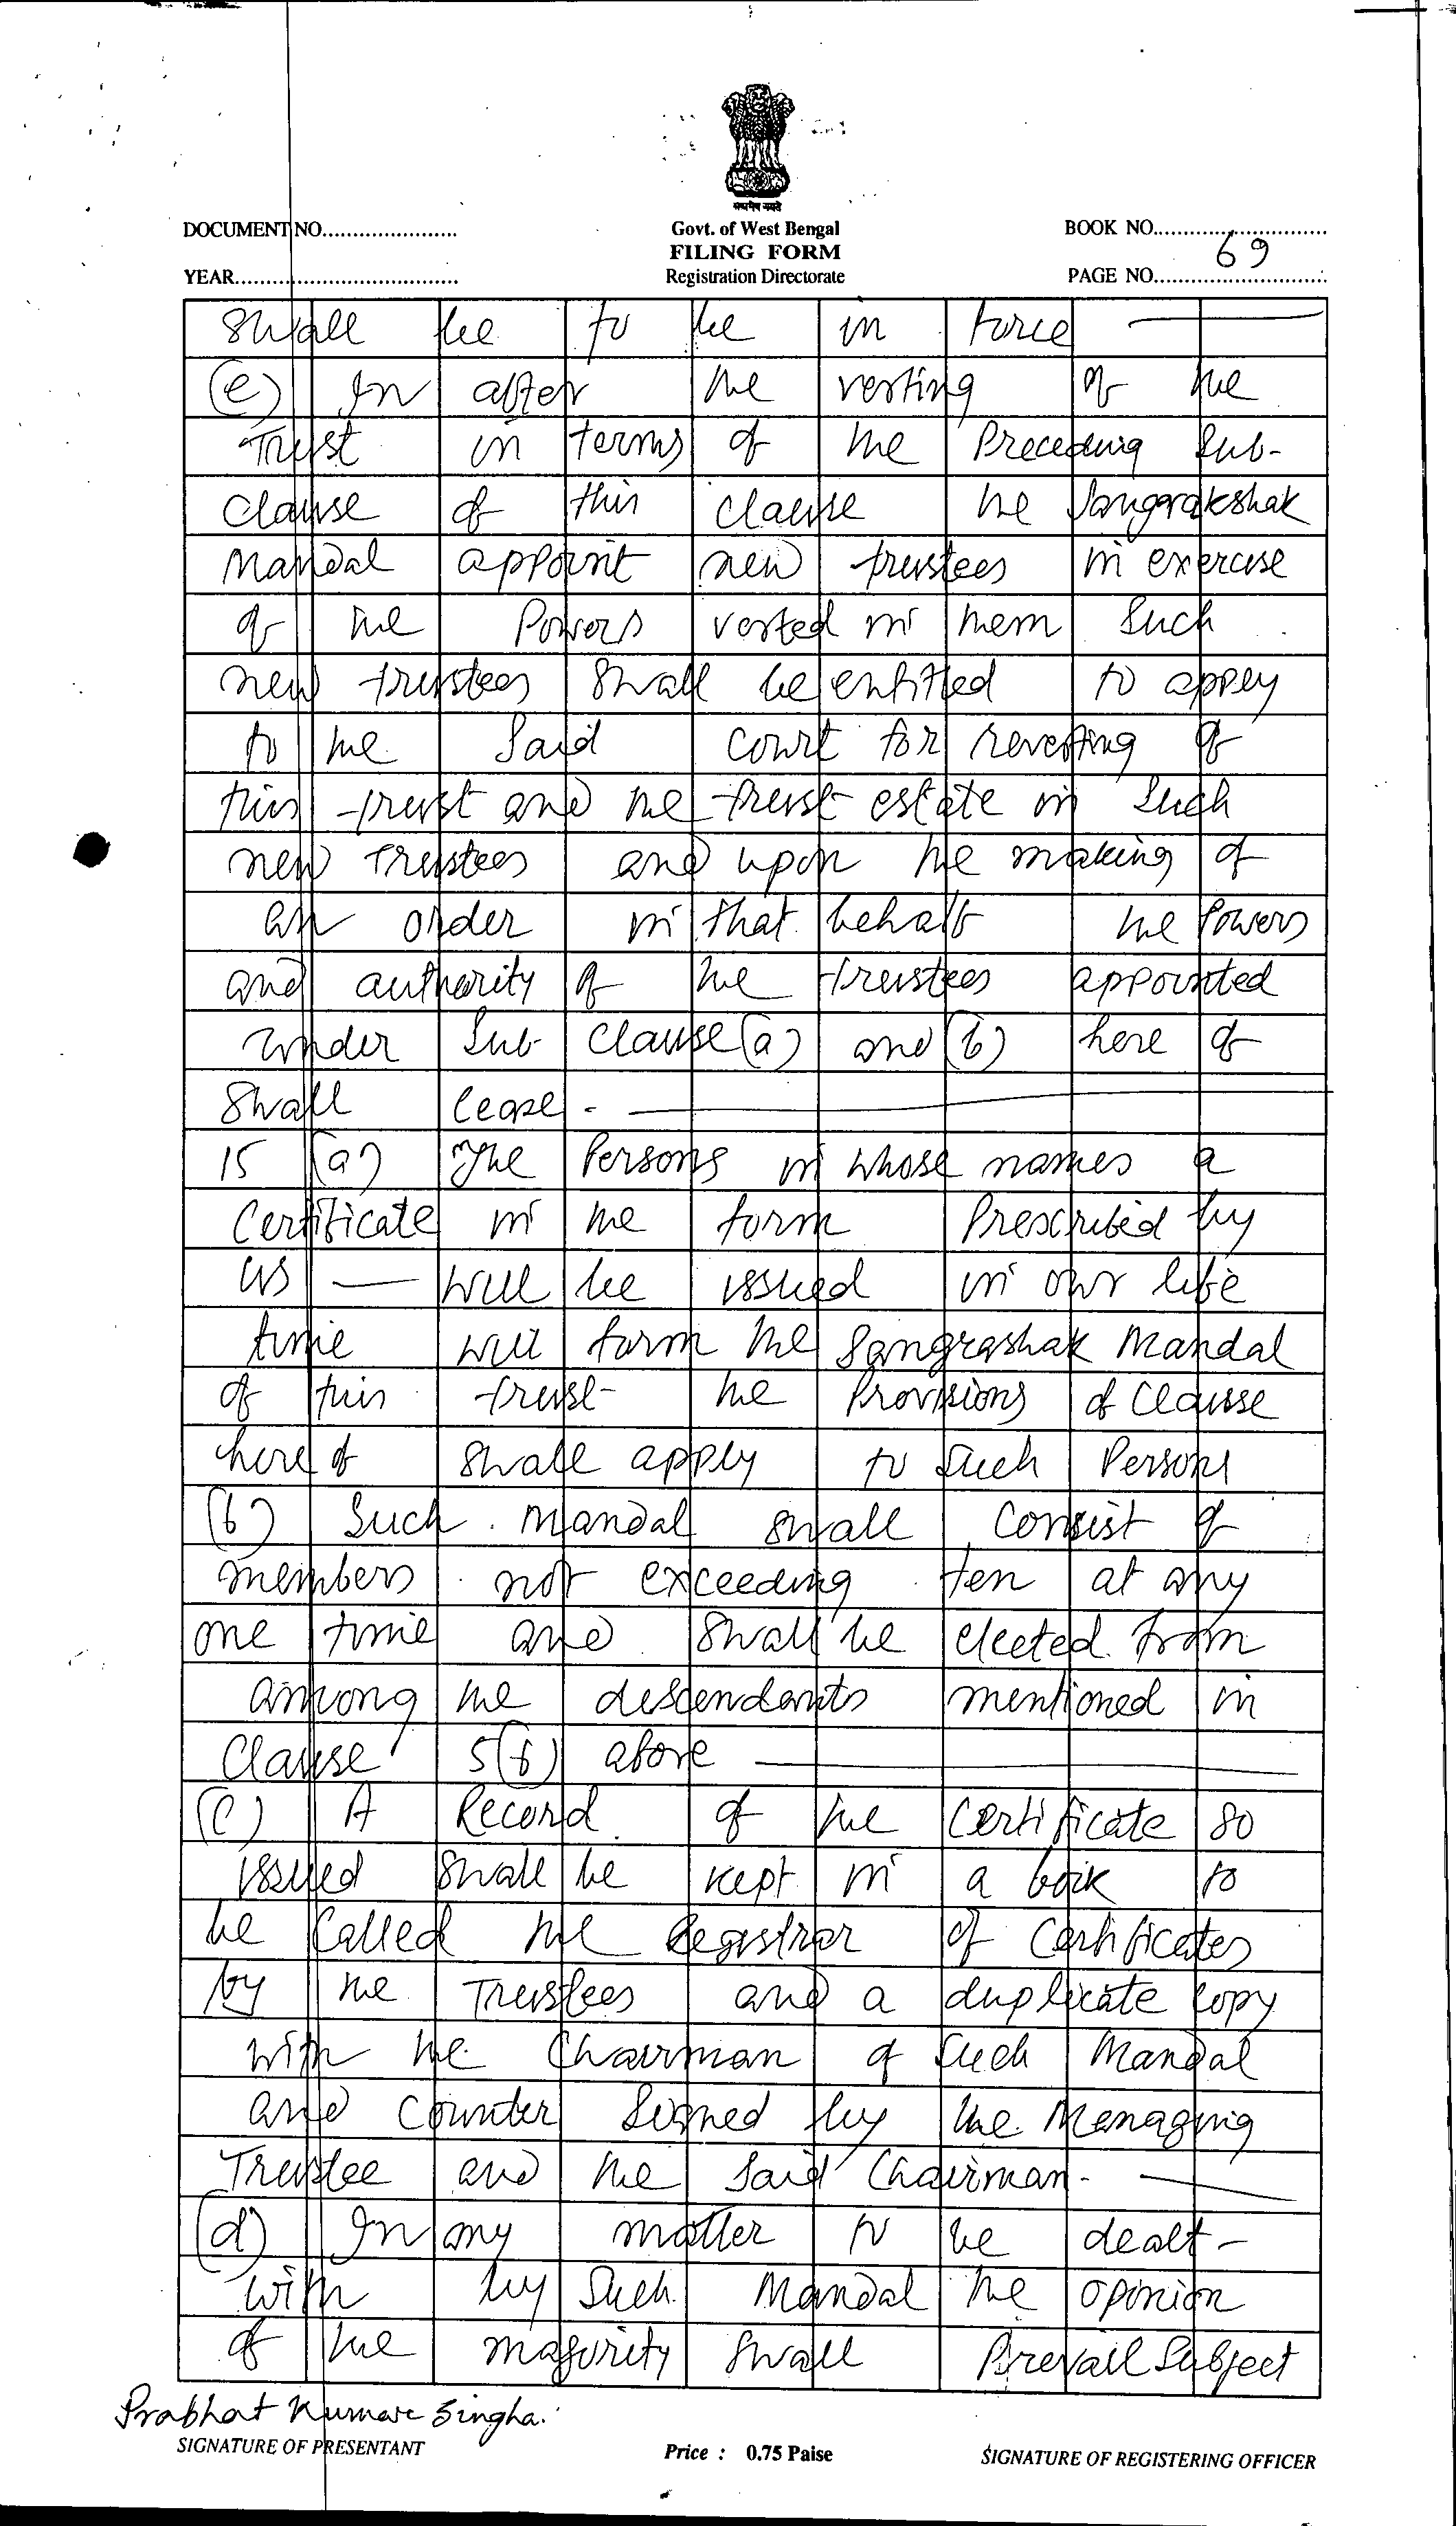 सत्यमेव जयते
DOCUMENT NO......................
Govt. of West Bengal
BOOK NO.............................
FILING FORM
69
YEAR.....................................
Registration Directorate
PAGE NO.............................
Shall be to be in force
(e) In after the vesting of the
Trust in terms of the Preceding Sub-
clause of this clause the Sangrakshak
Mandal appoint new trustees in exercise
of the Powers vested in them Such
new trustees Shall be entitled to apply
to the Said court for revesting of
this trust and the trust estate in Such
new Trustees and upon the making of
an order in that behalf the Powers
and authority of the trustees appointed
under Sub- clause (a) and (b) here of
Shall cease.
15 (a) The Persons in whose names a
Certificate in the form Prescribed by
us — will be issued in our life
time will form the Sangrashak Mandal
of this trust the Provisions of Clausse
here of Shall apply to Such Persons
(b) Such Mandal Shall Consist of
members not exceeding ten at any
one time and Shall be elected from
among the descendants mentioned in
Clause 5(f) above
(C) A Record of the Certificate so
issued Shall be kept in a book to
be Called the Registrar of Certificates
by the Trustees and a duplicate copy
with the Chairman of Such Mandal
and Counter Signed by the Menaging
Trustee and the Said Chairman.
(d) In any matter to be dealt-
with by Such Mandal the opinion
of the majority Shall Prevail Subject
Prabhat Kumar Singha.
SIGNATURE OF PRESENTANT
Price : 0.75 Paise
SIGNATURE OF REGISTERING OFFICER